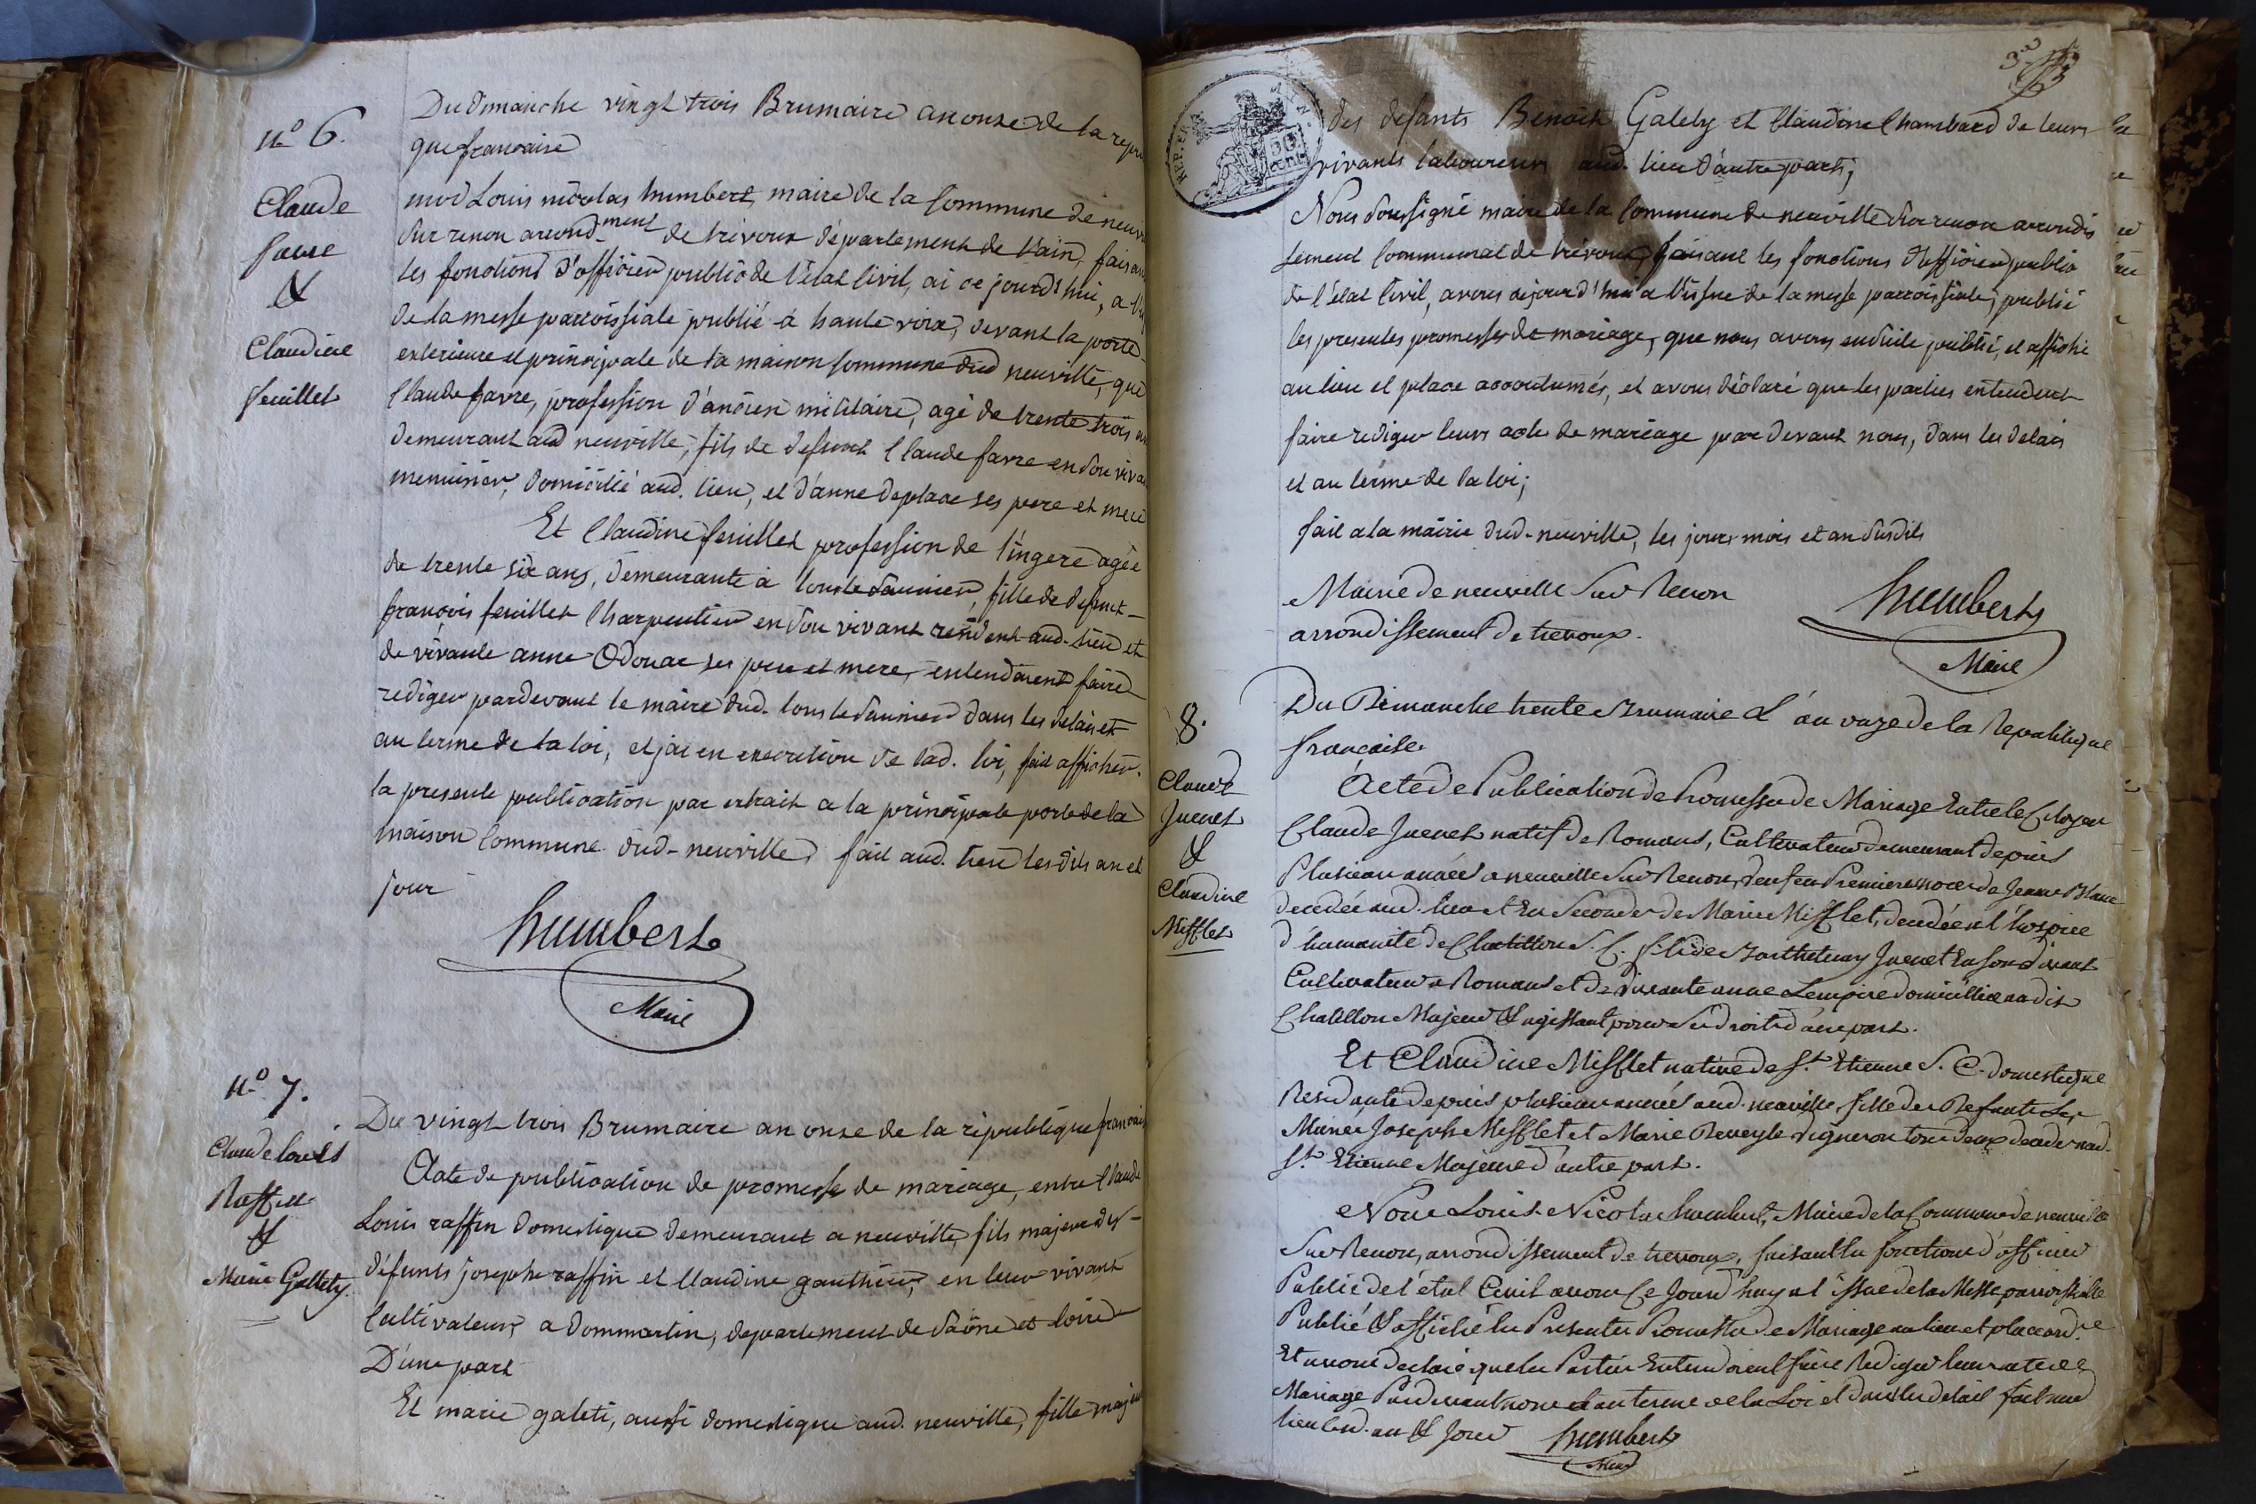 n.º 6.
Claude
favre
&
Claudine
feuillet
Du dimanche vingt trois Brumaire an onze de la repu
que francaise
moi Louis nicolas humbert, maire de la Commune de neuvi
sur renon arrond.ment de trevoux département de l'ain, faisan
les fonctions d'officier public de l'état Civil, ai ce jourd'hui, a l'is
de la messe parroissiale publié à haute voix, devant la porte
exterieure et principale de la maison Commune dud neuville, que
Claude favre, profession d'ancien militaire, agé de trente trois an
demeurant aud neuville, fils de defunct Claude favre en son viva
menuisier, domicilié aud. lieu, et d'anne deplace ses pere et mere
Et Claudine feuillet profession de lingere agée
de trente six ans, demeurante à lons le saunier, fille de defunct
françois feuillet Charpentier en son vivant résident aud. lieu et
de vivante anne Odouae ses pere et mere, entendaient faire
rediger pardevant le maire dud. lons le saunier dans les delais et
au terme de la loi, et j'ai en execution de lad. loi, fait afficher
la presente publication par extrait a la principale porte de la
maison Commune dud-neuville, fait aud. lieu les dits an et
jour
humbert
Maire
n.º 7.
Claude Louis
Raffin
&
Marie Gallety.
Du vingt trois Brumaire an onze de la république francais
Acte de publication de promesse de mariage, entre Claude
Louis raffin domestique demeurant a neuville, fils majeur des
défunts joseph raffin et Claudine gauthier, en leur vivant
Cultivateurs a dommartin, departement de Saône et loire
D'une part
Et marie galeti, aussi domestique aud. neuville, fille majeu
3.e
REP. FRA.
des defants Benoit Galety et Claudine Chambard de leurs
vivants laboureurs aud. lieu d'autre part;
Nous soussigné maire de la Commune de neuville sur renon arrondis
sement Communal de trévoux, faisant les fonctions d'officier public
de l'état Civil, avons cejourd'hui a l'issue de la messe parroissiale, publié
les presentes promesses de mariage, que nous avons ensuite publié, et affiché
au lieu et place accoutumés, et avons déclaré que les parties entendent
faire rediger leurs acte de mariage par devant nous, dans les delais
et au terme de la loi;
fait a la mairie dud-neuville, les jours mois et an susdits
Mairie de neuville Sur Renon
arrondissement de trevoux.
humbert
Maire
8.
Claude
Juenet
&
Claudine
Mifflet
Du Dimanche trente Brumaire L'an onze de la Republique
française
Acte de Publication de Promesses de Mariage Entre le Citoyen
Claude Juenet natif de Romans, Cultivateur demeurant depuis
Plusieurs années a neuville Sur Renon, veuf en Premiere noces de Jeanne Blanc
decedée aud. lieu et En Secondes de Marie Mifflet, decedée en l'hospice
d'humanité de Chatillon S. C. fils de Barthelemy Juenet En son vivant
Cultivateur a Romans et de vivante anne Lempire domiciliée audit
Chatillon Majeur & agissant pour Ses droits d'une part.
Et Claudine Mifflet native de St. Etienne S. C. domestique
Residante depuis plusieurs années aud. neuville fille des Defunts
Joseph Mifflet et Marie Reveyle vigneron tous deux decedes aud.
St. Etienne Majeure d'autre part.
Nous Louis Nicolas humbert, Maire de la Commune de neuville
Sur Renon, arrondissement de trevoux, faisant les fonctions d'officier
Public de l'état Civil avons Ce Jourd'huy a l'issue de la Messe parroissialle
Publié & affiché les Presentes Promesses de Mariage au lieu et place ord.re
Et avons declaré que les Parties Entendoient faire Rediger leurs acte de
Mariage Pardevant nous et au terme de la Loi et dans les delais fait aud
lieu Lesd. an & Jour
humbert
Maire